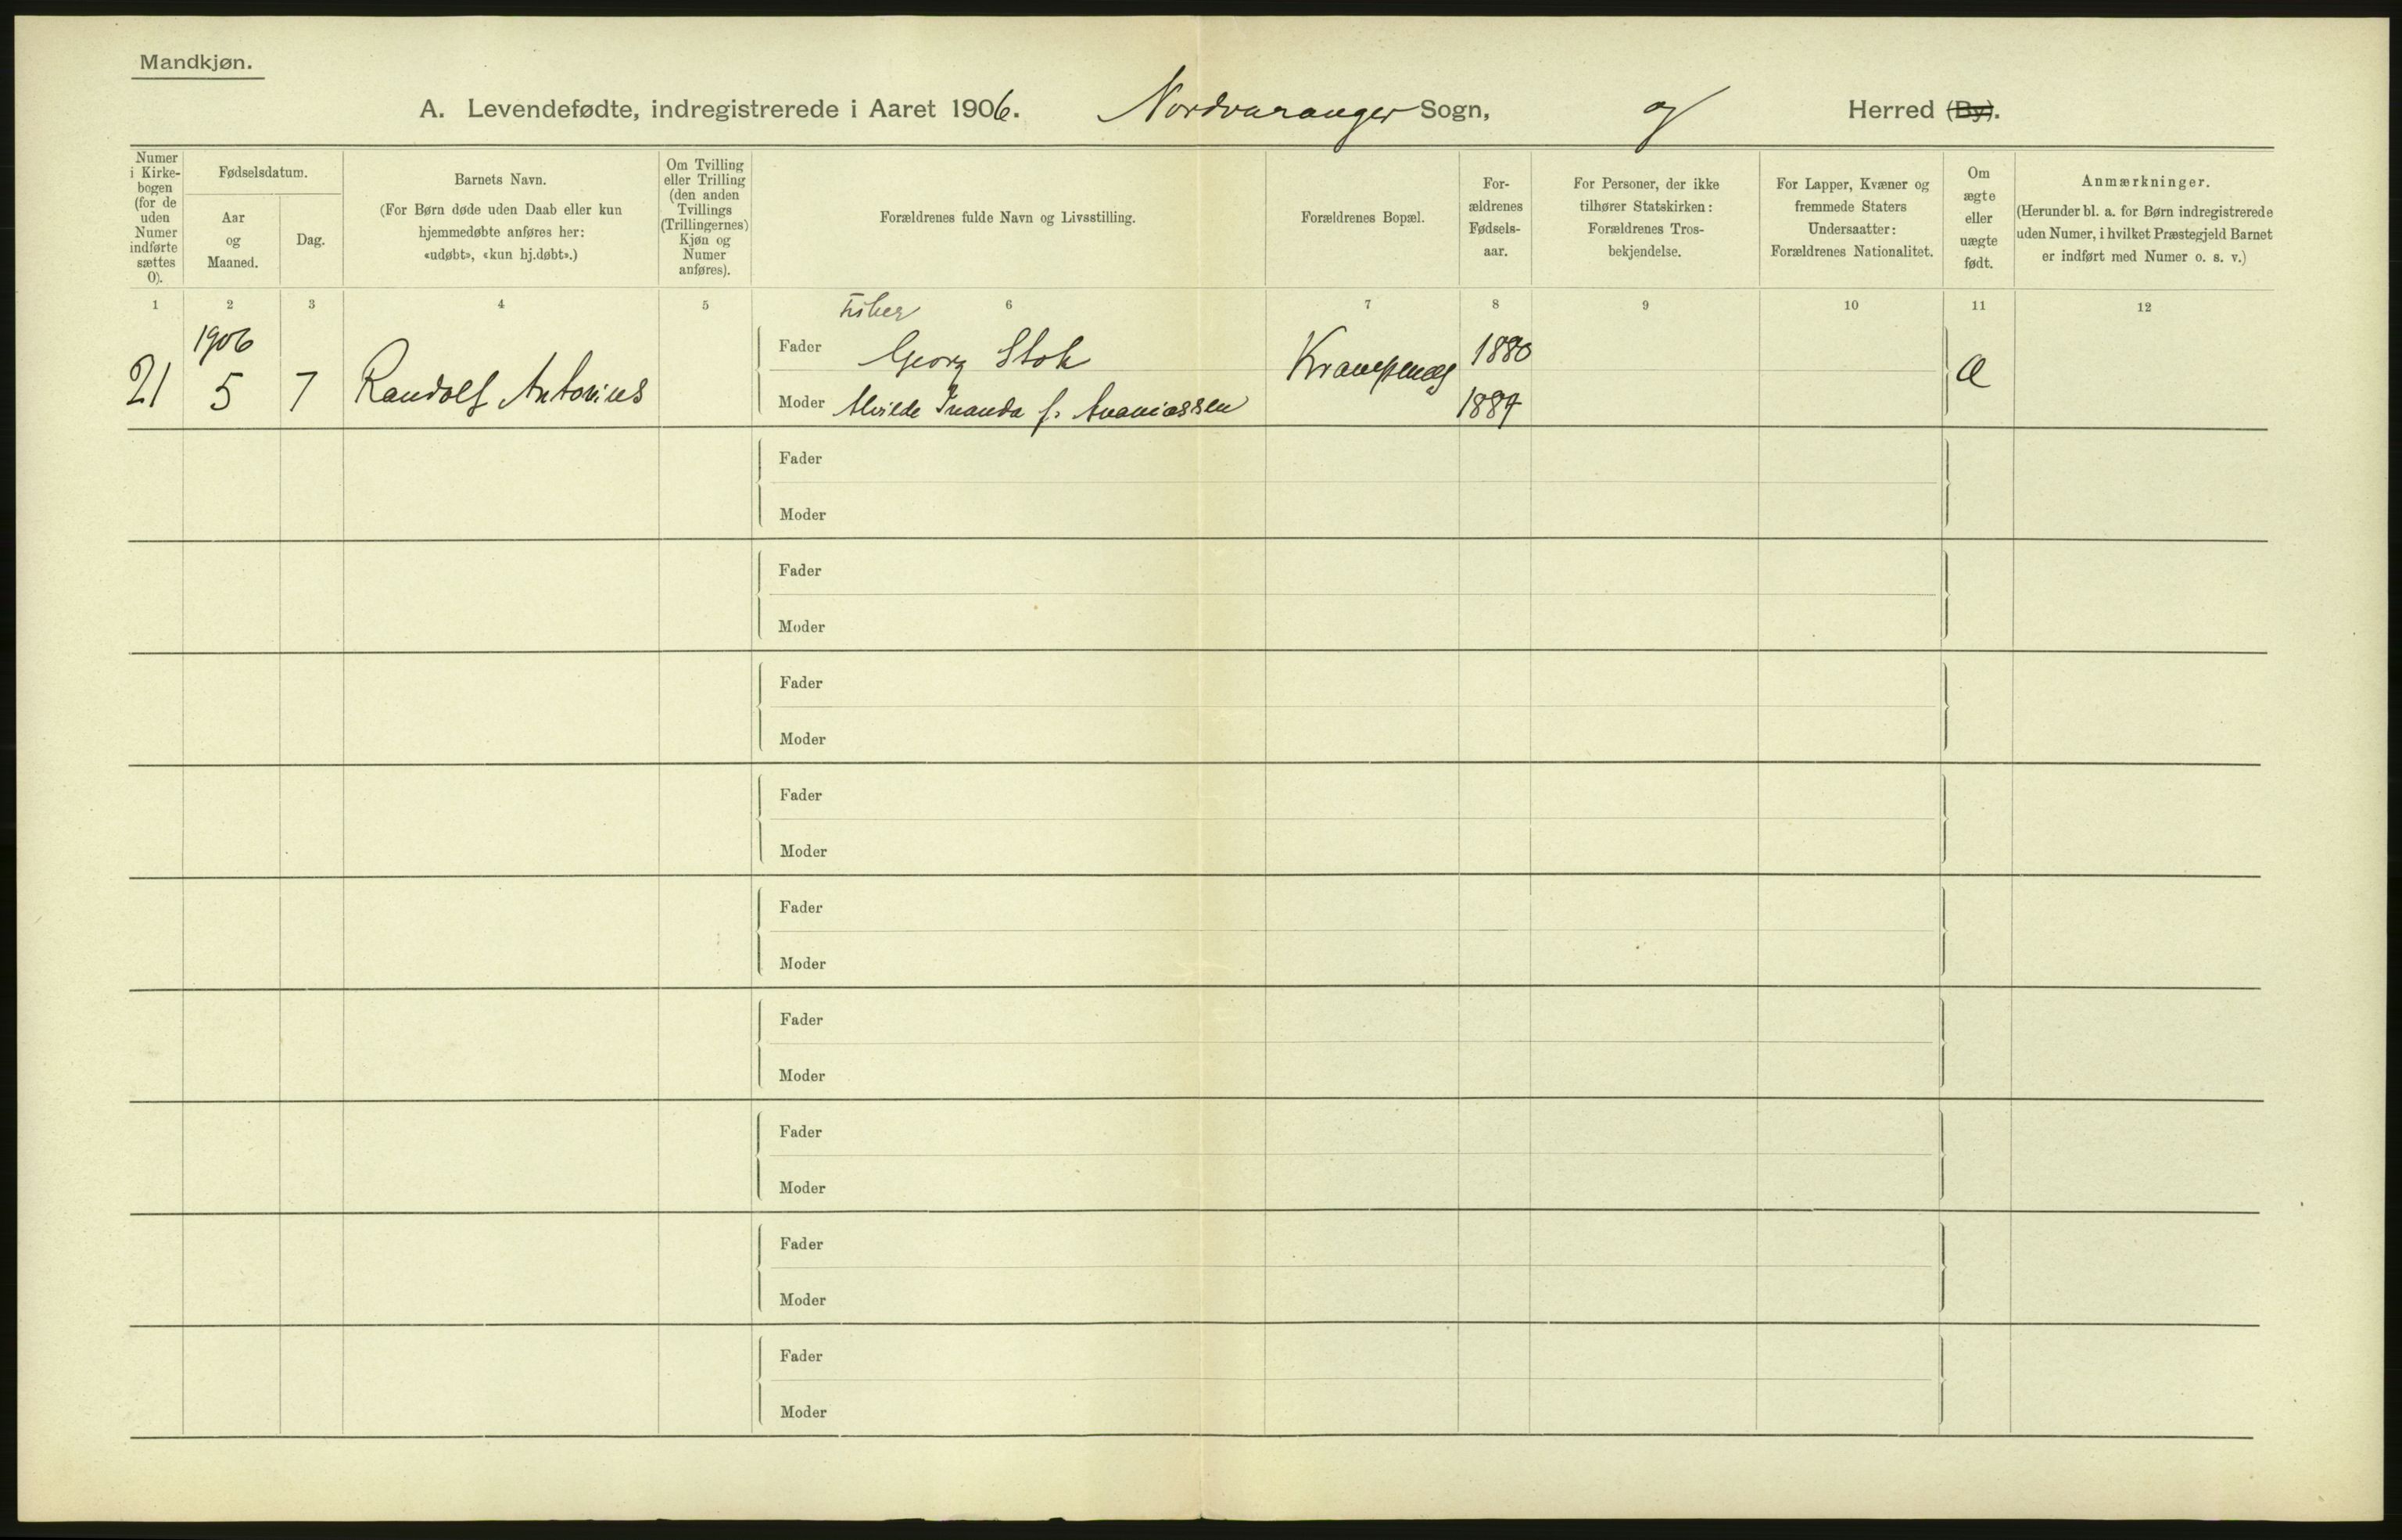 Mandkjøn.
A. Levendefødte, indregistrerede i Aaret 1906. Nordvaranger Sogn, og Herred (By).
Numer
i Kirke-
bogen
(for de
uden
Numer
indførte
sættes
0).
Fødselsdatum.
Aar
og
Maaned.
Dag.
Barnets Navn.
(For Børn døde uden Daab eller kun
hjemmedøbte anføres her:
«udøbt», «kun hj.døbt».)
Om Tvilling
eller Trilling
(den anden
Tvillings
(Trillingernes)
Kjøn og
Numer
anføres).
Forældrenes fulde Navn og Livsstilling.
Forældrenes Bopæl.
For-
ældrenes
Fødsels-
aar.
For Personer, der ikke
tilhører Statskirken:
Forældrenes Tros-
bekjendelse.
For Lapper, Kvæner og
fremmede Staters
Undersaatter:
Forældrenes Nationalitet.
Om
ægte
eller
uægte
født.
Anmærkninger.
(Herunder bl. a. for Børn indregistrerede
uden Numer, i hvilket Præstegjeld Barnet
er indført med Numer o. s. v.)
1 2 3 4 5 6 7 8 9 10 11 12
Fisker
1906
Fader Georg Stok 1880
21 5 7 Randolf Antonius Krampenæs Æ
Moder Alvilde Inanda f. Ananiassen 1887
Fader
Moder
Fader
Moder
Fader
Moder
Fader
Moder
Fader
Moder
Fader
Moder
Fader
Moder
Fader
Moder
Fader
Moder